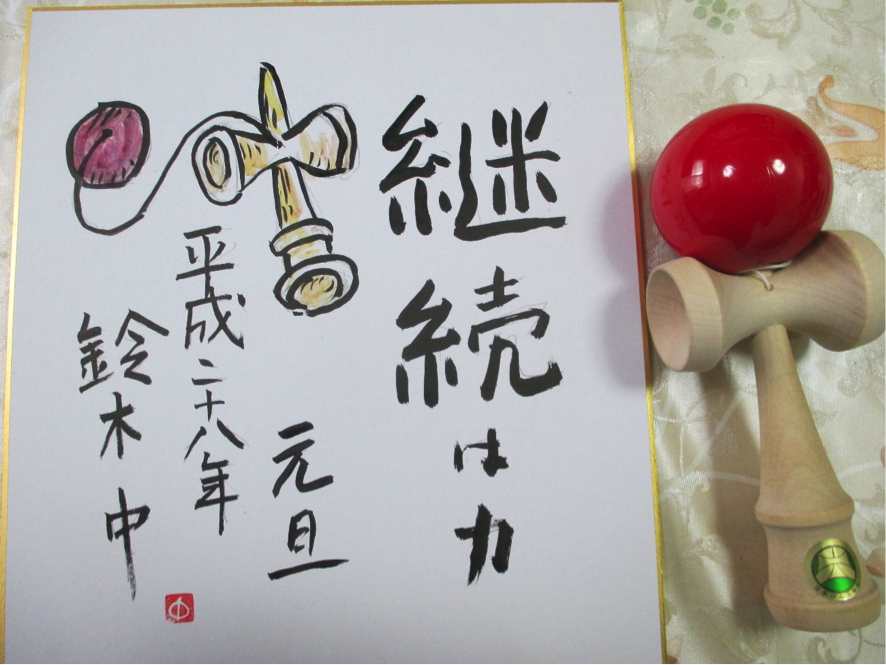 継続は力
元旦
平成二十八年
鈴木中
中